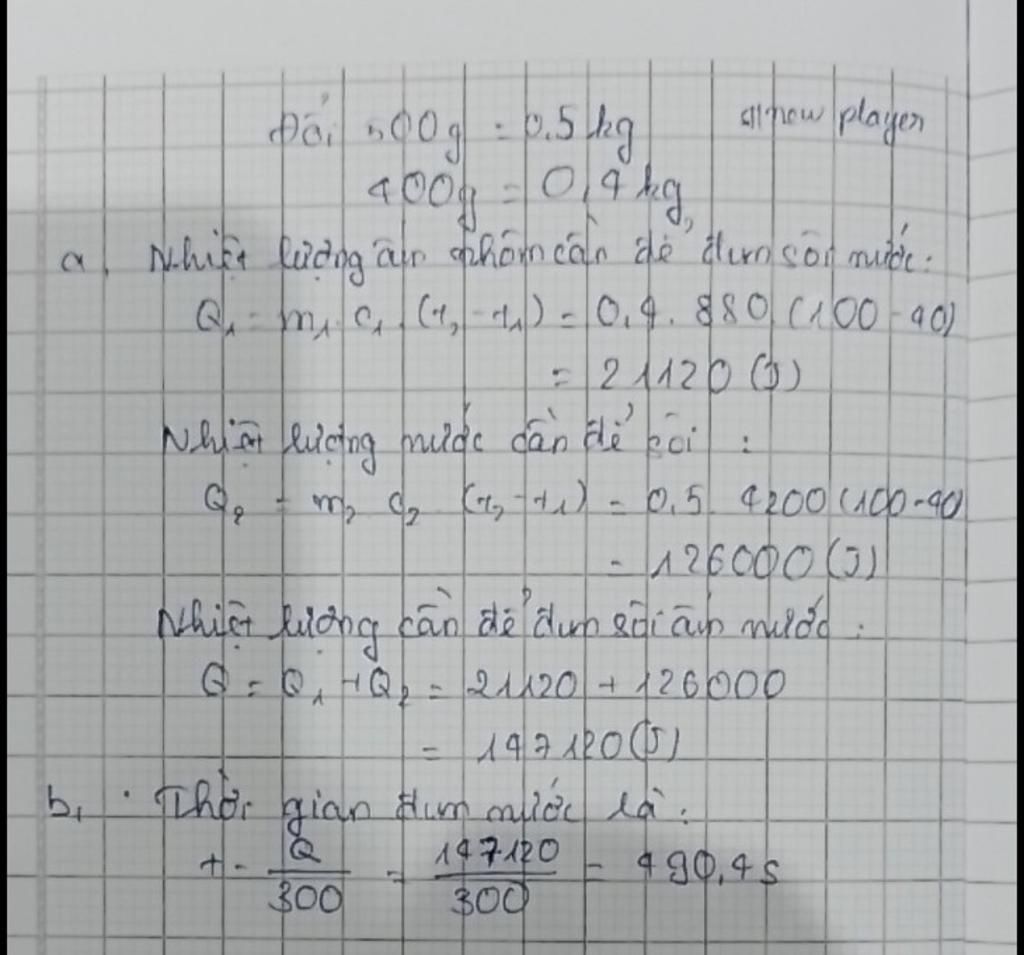 Đổi 500g = 0,5 kg
new player
400g = 0,4 kg
a, Nhiệt lượng ấm nhôm cần để đun sôi nước:
Q₁ = m₁.c₁.(t₂-t₁) = 0,4.880(100-40)
= 21120(J)
Nhiệt lượng nước cần để sôi :
Q₂ = m₂ c₂ (t₂-t₁) = 0,5 4200(100-40)
= 126000(J)
Nhiệt lượng cần để đun sôi ấm nước:
Q = Q₁+Q₂ = 21120 + 126000
= 147120(J)
b, Thời gian đun nước là:
t = Q/300 = 147120/300 = 490,4s